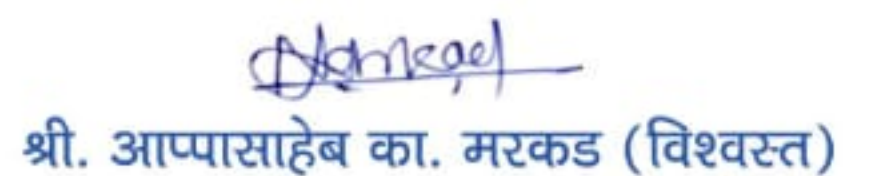 श्री. आप्पासाहेब का. मरकड (विश्वस्त)